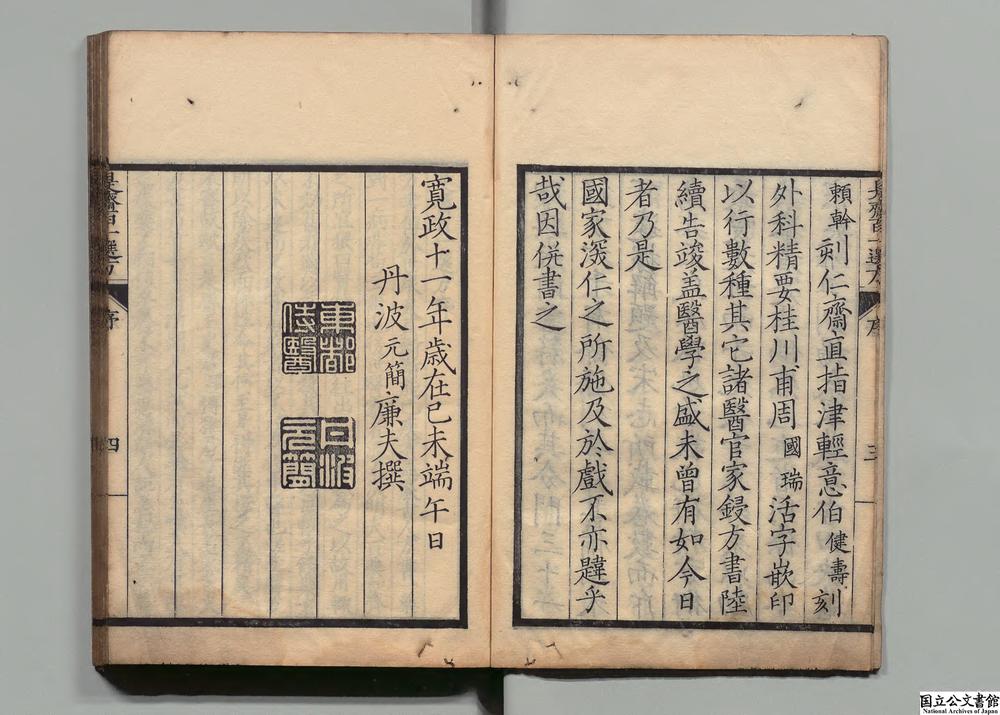 頼幹刻仁齋直指津輕意伯健壽刻
外科精要桂川甫周國瑞活字嵌印
以行數種其它諸醫官家鋟方書陸
續告竣盖醫學之盛未曾有如今日
者乃是
國家深仁之所施及於戲不亦韙乎
哉因併書之
寛政十一年歳在己未端午日
丹波元簡廉夫撰
東都侍醫
丹波元簡
是齋百一選方
序
三
是齋百一選方
序
四
国立公文書館
National Archives of Japan